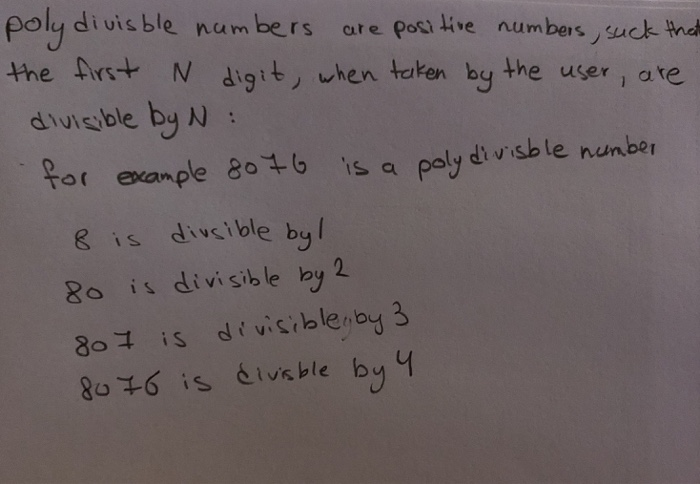 polydivisble numbers are positive numbers, suck that
the first N digit, when taken by the user, are
divisible by N :
for example 8076 is a polydivisble number
8 is divsible by 1
80 is divisible by 2
807 is divisible by 3
8076 is divisble by 4